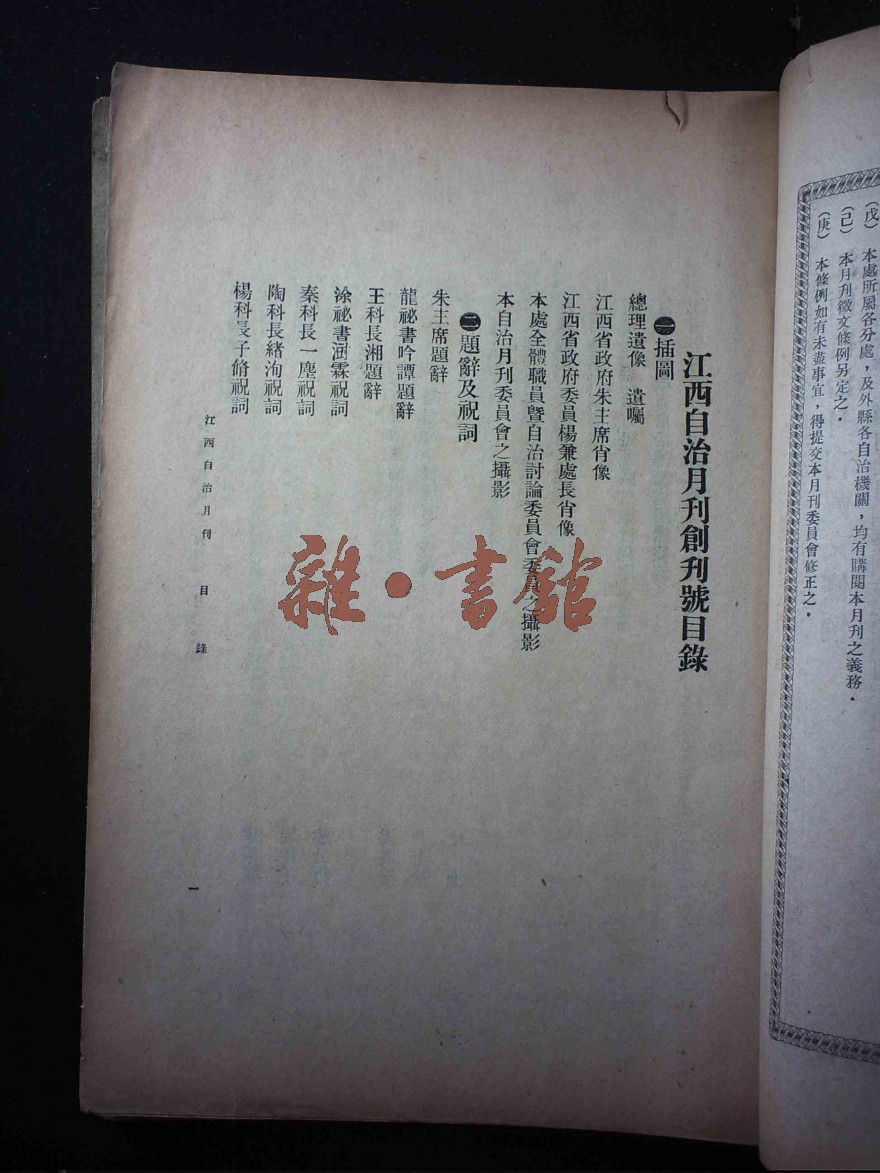 (戊) 本處所屬各分處，及外縣各自治機關，均有購閱本月刊之義務．
(己) 本月刊徵文條例另定之．
(庚) 本條例如有未盡事宜，得提交本月刊委員會修正之．
江西自治月刊創刊號目錄
㊀插圖
總理遺像　遺囑
江西省政府朱主席肖像
江西省政府委員楊兼處長肖像
本處全體職員曁自治討論委員會委員之攝影
本自治月刊委員會之攝影
㊁題辭及祝詞
朱主席題辭
龍祕書吟譚題辭
王科長湘題辭
涂祕書澍霖祝詞
秦科長一塵祝詞
陶科長緒洵祝詞
楊科長子脩祝詞
江西自治月刊　目錄
一
雜·書館